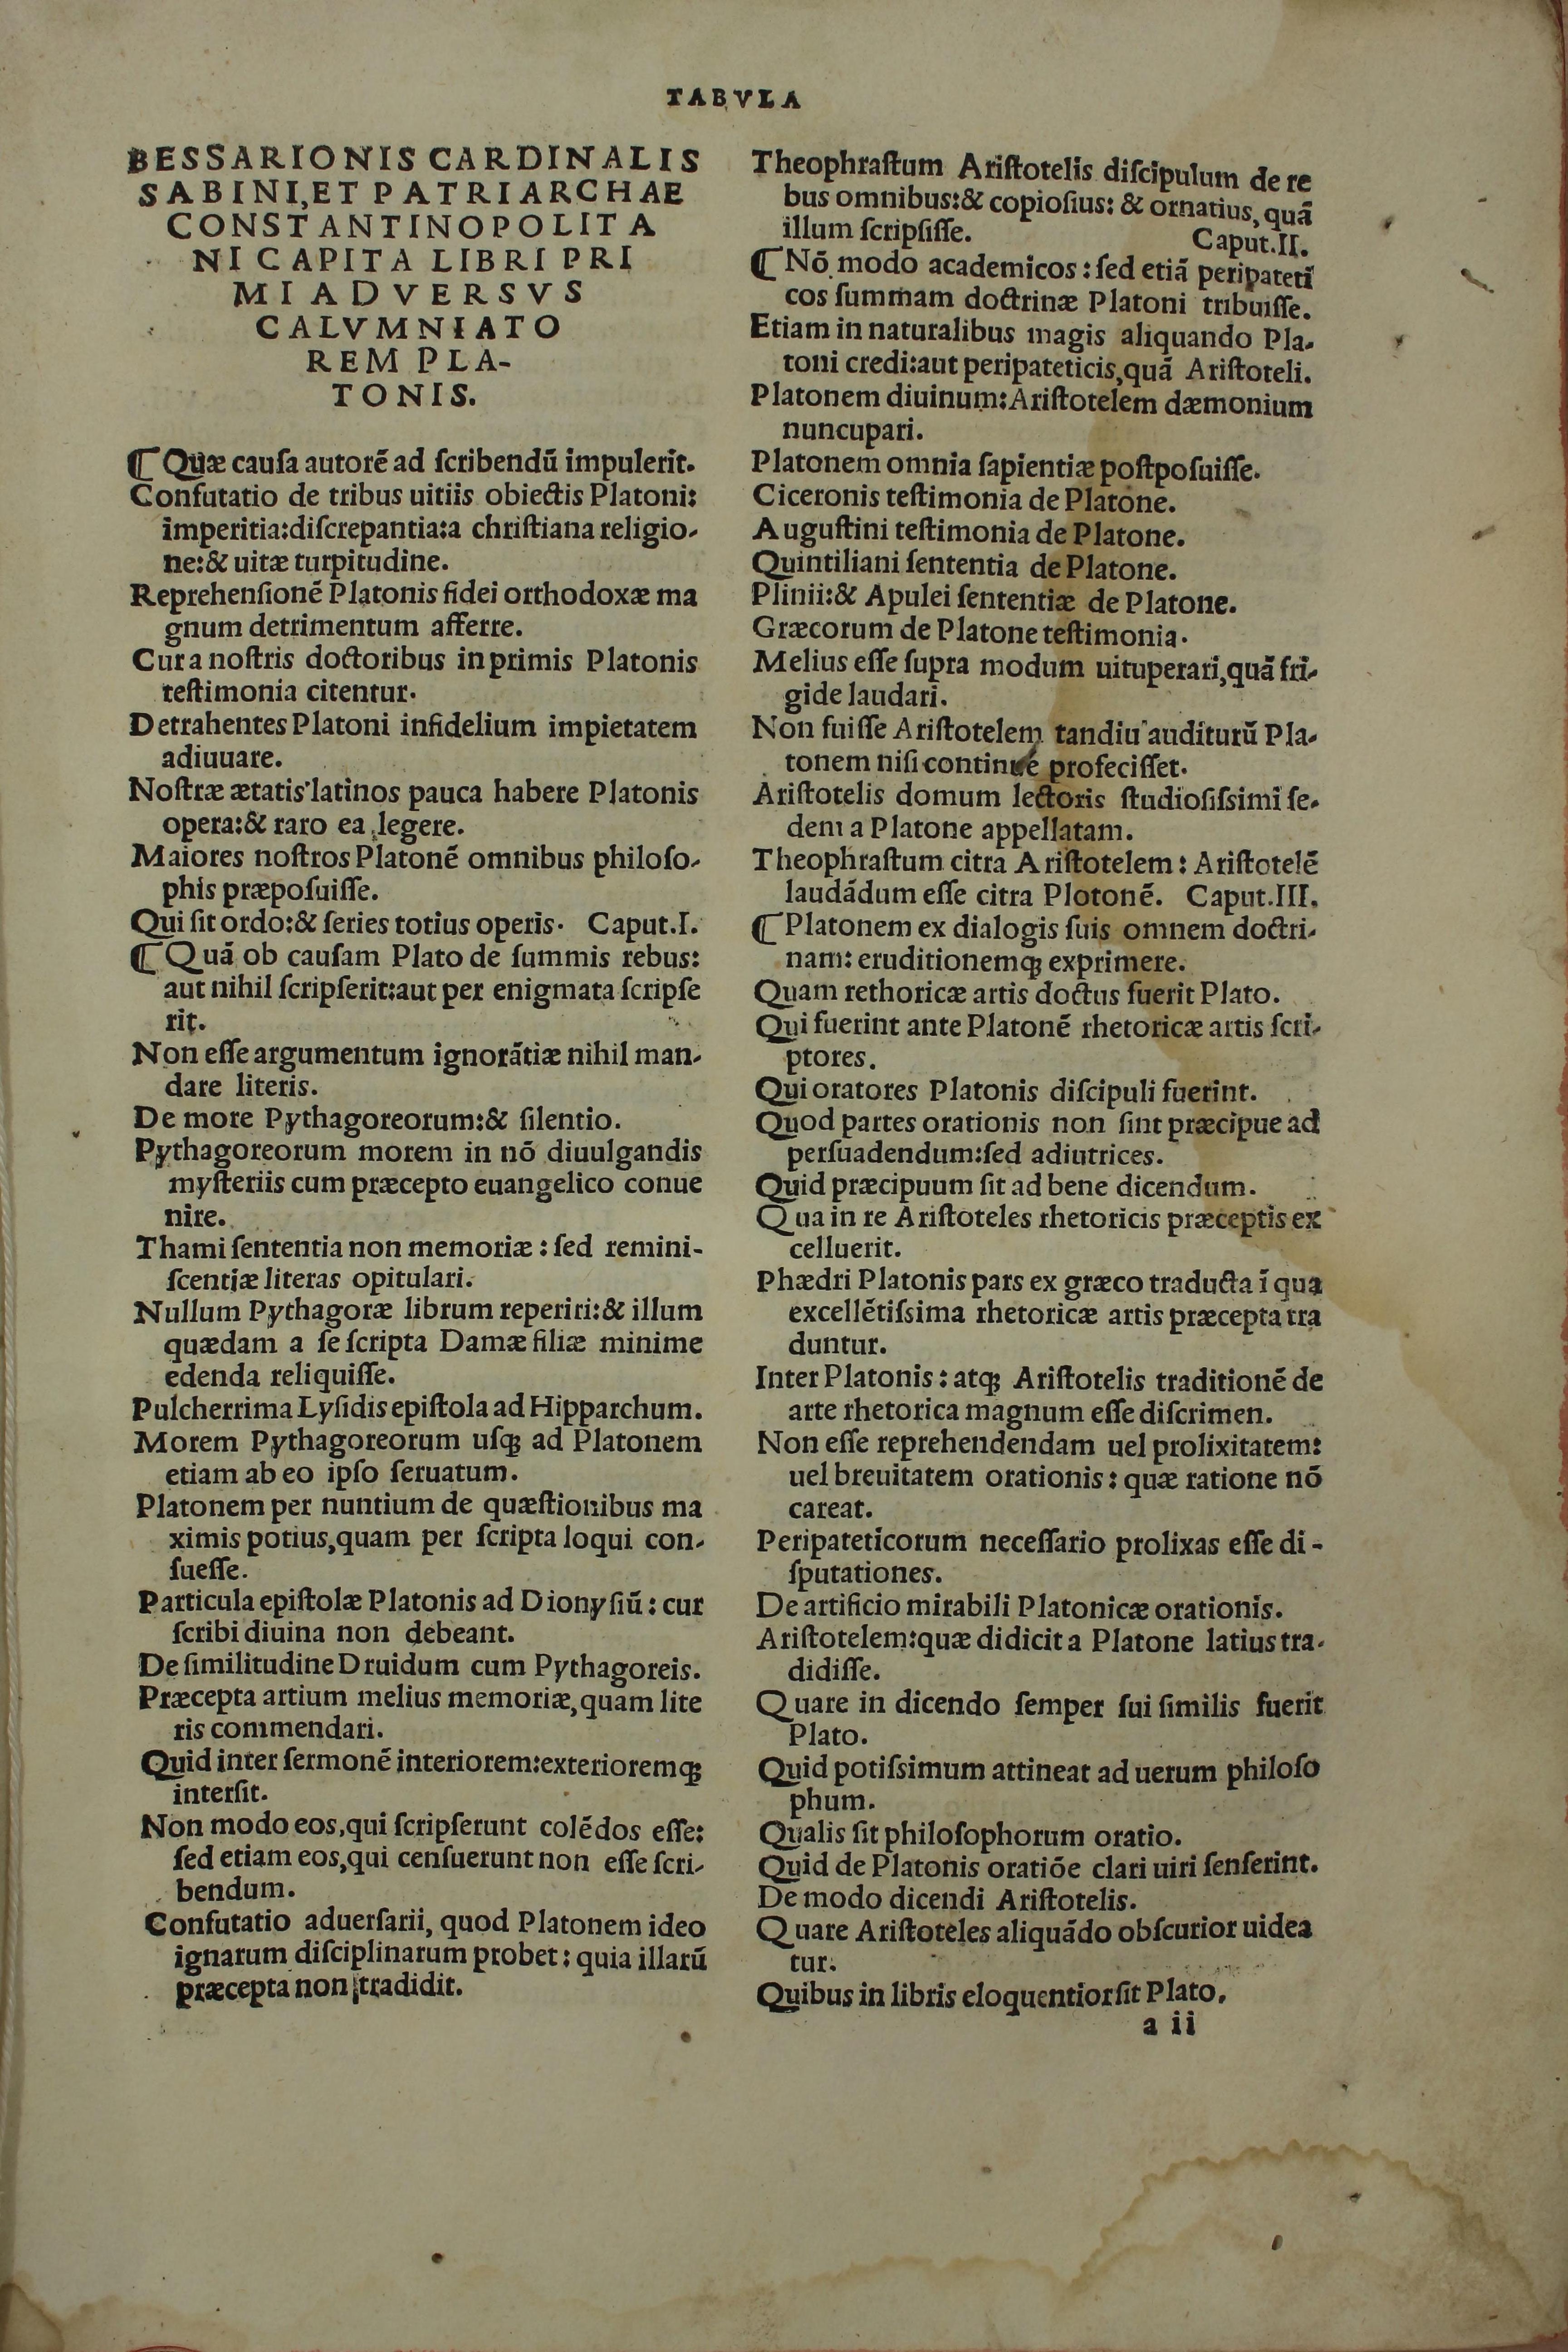 TABVLA
BESSARIONIS CARDINALIS
SABINI, ET PATRIARCHAE
CONSTANTINOPOLITA
NI CAPITA LIBRI PRI
MI ADVERSVS
CALVMNIATO
REM PLA-
TONIS.
¶ Quæ cauſa autorē ad ſcribendū impulerit.
Confutatio de tribus uitiis obiectis Platoni:
imperitia:diſcrepantia:a chriſtiana religio-
ne:& uitæ turpitudine.
Reprehenſionē Platonis fidei orthodoxæ ma
gnum detrimentum afferre.
Cur a noſtris doctoribus in primis Platonis
teſtimonia citentur.
Detrahentes Platoni infidelium impietatem
adiuuare.
Noſtræ ætatis latinos pauca habere Platonis
opera:& raro ea legere.
Maiores noſtros Platonē omnibus philoſo-
phis præpoſuiſſe.
Qui ſit ordo:& ſeries totius operis. Caput.I.
¶ Quā ob cauſam Plato de ſummis rebus:
aut nihil ſcripſerit:aut per enigmata ſcripſe
rit.
Non eſſe argumentum ignorātiæ nihil man-
dare literis.
De more Pythagoreorum:& ſilentio.
Pythagoreorum morem in nō diuulgandis
myſteriis cum præcepto euangelico conue
nire.
Thami ſententia non memoriæ : ſed remini-
ſcentiæ literas opitulari.
Nullum Pythagoræ librum reperiri:& illum
quædam a ſe ſcripta Damæ filiæ minime
edenda reliquiſſe.
Pulcherrima Lyſidis epiſtola ad Hipparchum.
Morem Pythagoreorum uſq; ad Platonem
etiam ab eo ipſo ſeruatum.
Platonem per nuntium de quæſtionibus ma
ximis potius,quam per ſcripta loqui con-
ſueſſe.
Particula epiſtolæ Platonis ad Dionyſiū : cur
ſcribi diuina non debeant.
De ſimilitudine Druidum cum Pythagoreis.
Præcepta artium melius memoriæ,quam lite
ris commendari.
Quid inter ſermonē interiorem:exterioremq;
interſit.
Non modo eos,qui ſcripſerunt colēdos eſſe:
ſed etiam eos,qui cenſuerunt non eſſe ſcri-
bendum.
Confutatio aduerſarii, quod Platonem ideo
ignarum diſciplinarum probet : quia illarū
præcepta non tradidit.
Theophraſtum Ariſtotelis diſcipulum de re
bus omnibus:& copioſius: & ornatius, quā
illum ſcripſiſſe. Caput.II.
¶ Nō modo academicos : ſed etiā peripateti
cos ſummam doctrinæ Platoni tribuiſſe.
Etiam in naturalibus magis aliquando Pla-
toni credi:aut peripateticis,quā Ariſtoteli.
Platonem diuinum:Ariſtotelem dæmonium
nuncupari.
Platonem omnia ſapientiæ poſtpoſuiſſe.
Ciceronis teſtimonia de Platone.
Auguſtini teſtimonia de Platone.
Quintiliani ſententia de Platone.
Plinii:& Apulei ſententiæ de Platone.
Græcorum de Platone teſtimonia.
Melius eſſe ſupra modum uituperari,quā fri-
gide laudari.
Non fuiſſe Ariſtotelem tandiu auditurū Pla-
tonem niſi continue profeciſſet.
Ariſtotelis domum lectoris ſtudioſiſsimi ſe-
dem a Platone appellatam.
Theophraſtum citra Ariſtotelem : Ariſtotelē
laudādum eſſe citra Plotonē. Caput.III.
¶ Platonem ex dialogis ſuis omnem doctri-
nam: eruditionemq; exprimere.
Quam rethoricæ artis doctus fuerit Plato.
Qui fuerint ante Platonē rhetoricæ artis ſcri-
ptores.
Qui oratores Platonis diſcipuli fuerint.
Quod partes orationis non ſint præcipue ad
perſuadendum:ſed adiutrices.
Quid præcipuum ſit ad bene dicendum.
Qua in re Ariſtoteles rhetoricis præceptis ex
celluerit.
Phædri Platonis pars ex græco traducta ī qua
excellētiſsima rhetoricæ artis præcepta tra
duntur.
Inter Platonis : atq; Ariſtotelis traditionē de
arte rhetorica magnum eſſe diſcrimen.
Non eſſe reprehendendam uel prolixitatem:
uel breuitatem orationis : quæ ratione nō
careat.
Peripateticorum neceſſario prolixas eſſe di-
ſputationes.
De artificio mirabili Platonicæ orationis.
Ariſtotelem:quæ didicit a Platone latius tra-
didiſſe.
Quare in dicendo ſemper ſui ſimilis fuerit
Plato.
Quid potiſsimum attineat ad uerum philoſo
phum.
Qualis ſit philoſophorum oratio.
Quid de Platonis oratiōe clari uiri ſenſerint.
De modo dicendi Ariſtotelis.
Quare Ariſtoteles aliquādo obſcurior uidea
tur.
Quibus in libris eloquentior ſit Plato.
a ii